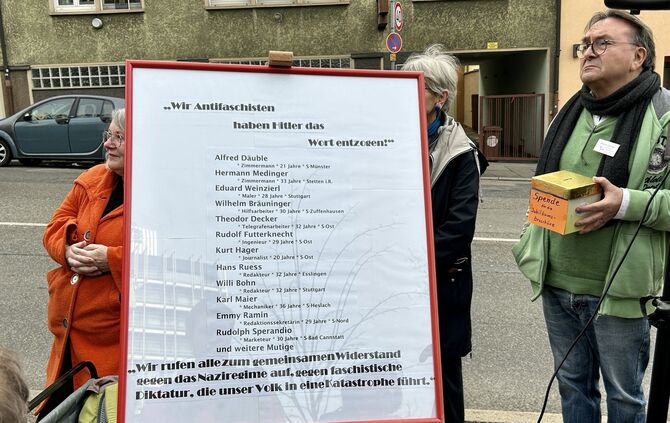 „Wir Antifaschisten
haben Hitler das
Wort entzogen!“
Alfred Däuble
* Zimmermann * 21 Jahre * S-Münster
Hermann Medinger
* Zimmermann * 33 Jahre * Stetten i.R.
Eduard Weinzierl
* Maler * 28 Jahre * Stuttgart
Wilhelm Bräuninger
* Hilfsarbeiter * 30 Jahre * S-Zuffenhausen
Theodor Decker
* Telegrafenarbeiter * 32 Jahre * S-Ost
Rudolf Futterknecht
* Ingenieur * 29 Jahre * S-Ost
Kurt Hager
* Journalist * 20 Jahre * S-Ost
Hans Ruess
* Redakteur * 32 Jahre * Esslingen
Willi Bohn
* Redakteur * 32 Jahre * Stuttgart
Karl Maier
* Mechaniker * 36 Jahre * S-Heslach
Emmy Ramin
* Redaktionssekretärin * 29 Jahre * S-Nord
Rudolph Sperandio
* Marketeur * 30 Jahre * S-Bad Cannstatt
und weitere Mutige
„Wir rufen alle zum gemeinsamen Widerstand
gegen das Naziregime auf, gegen faschistische
Diktatur, die unser Volk in eine Katastrophe führt.“
Spende
an die
Jubiläums-
Broschüre